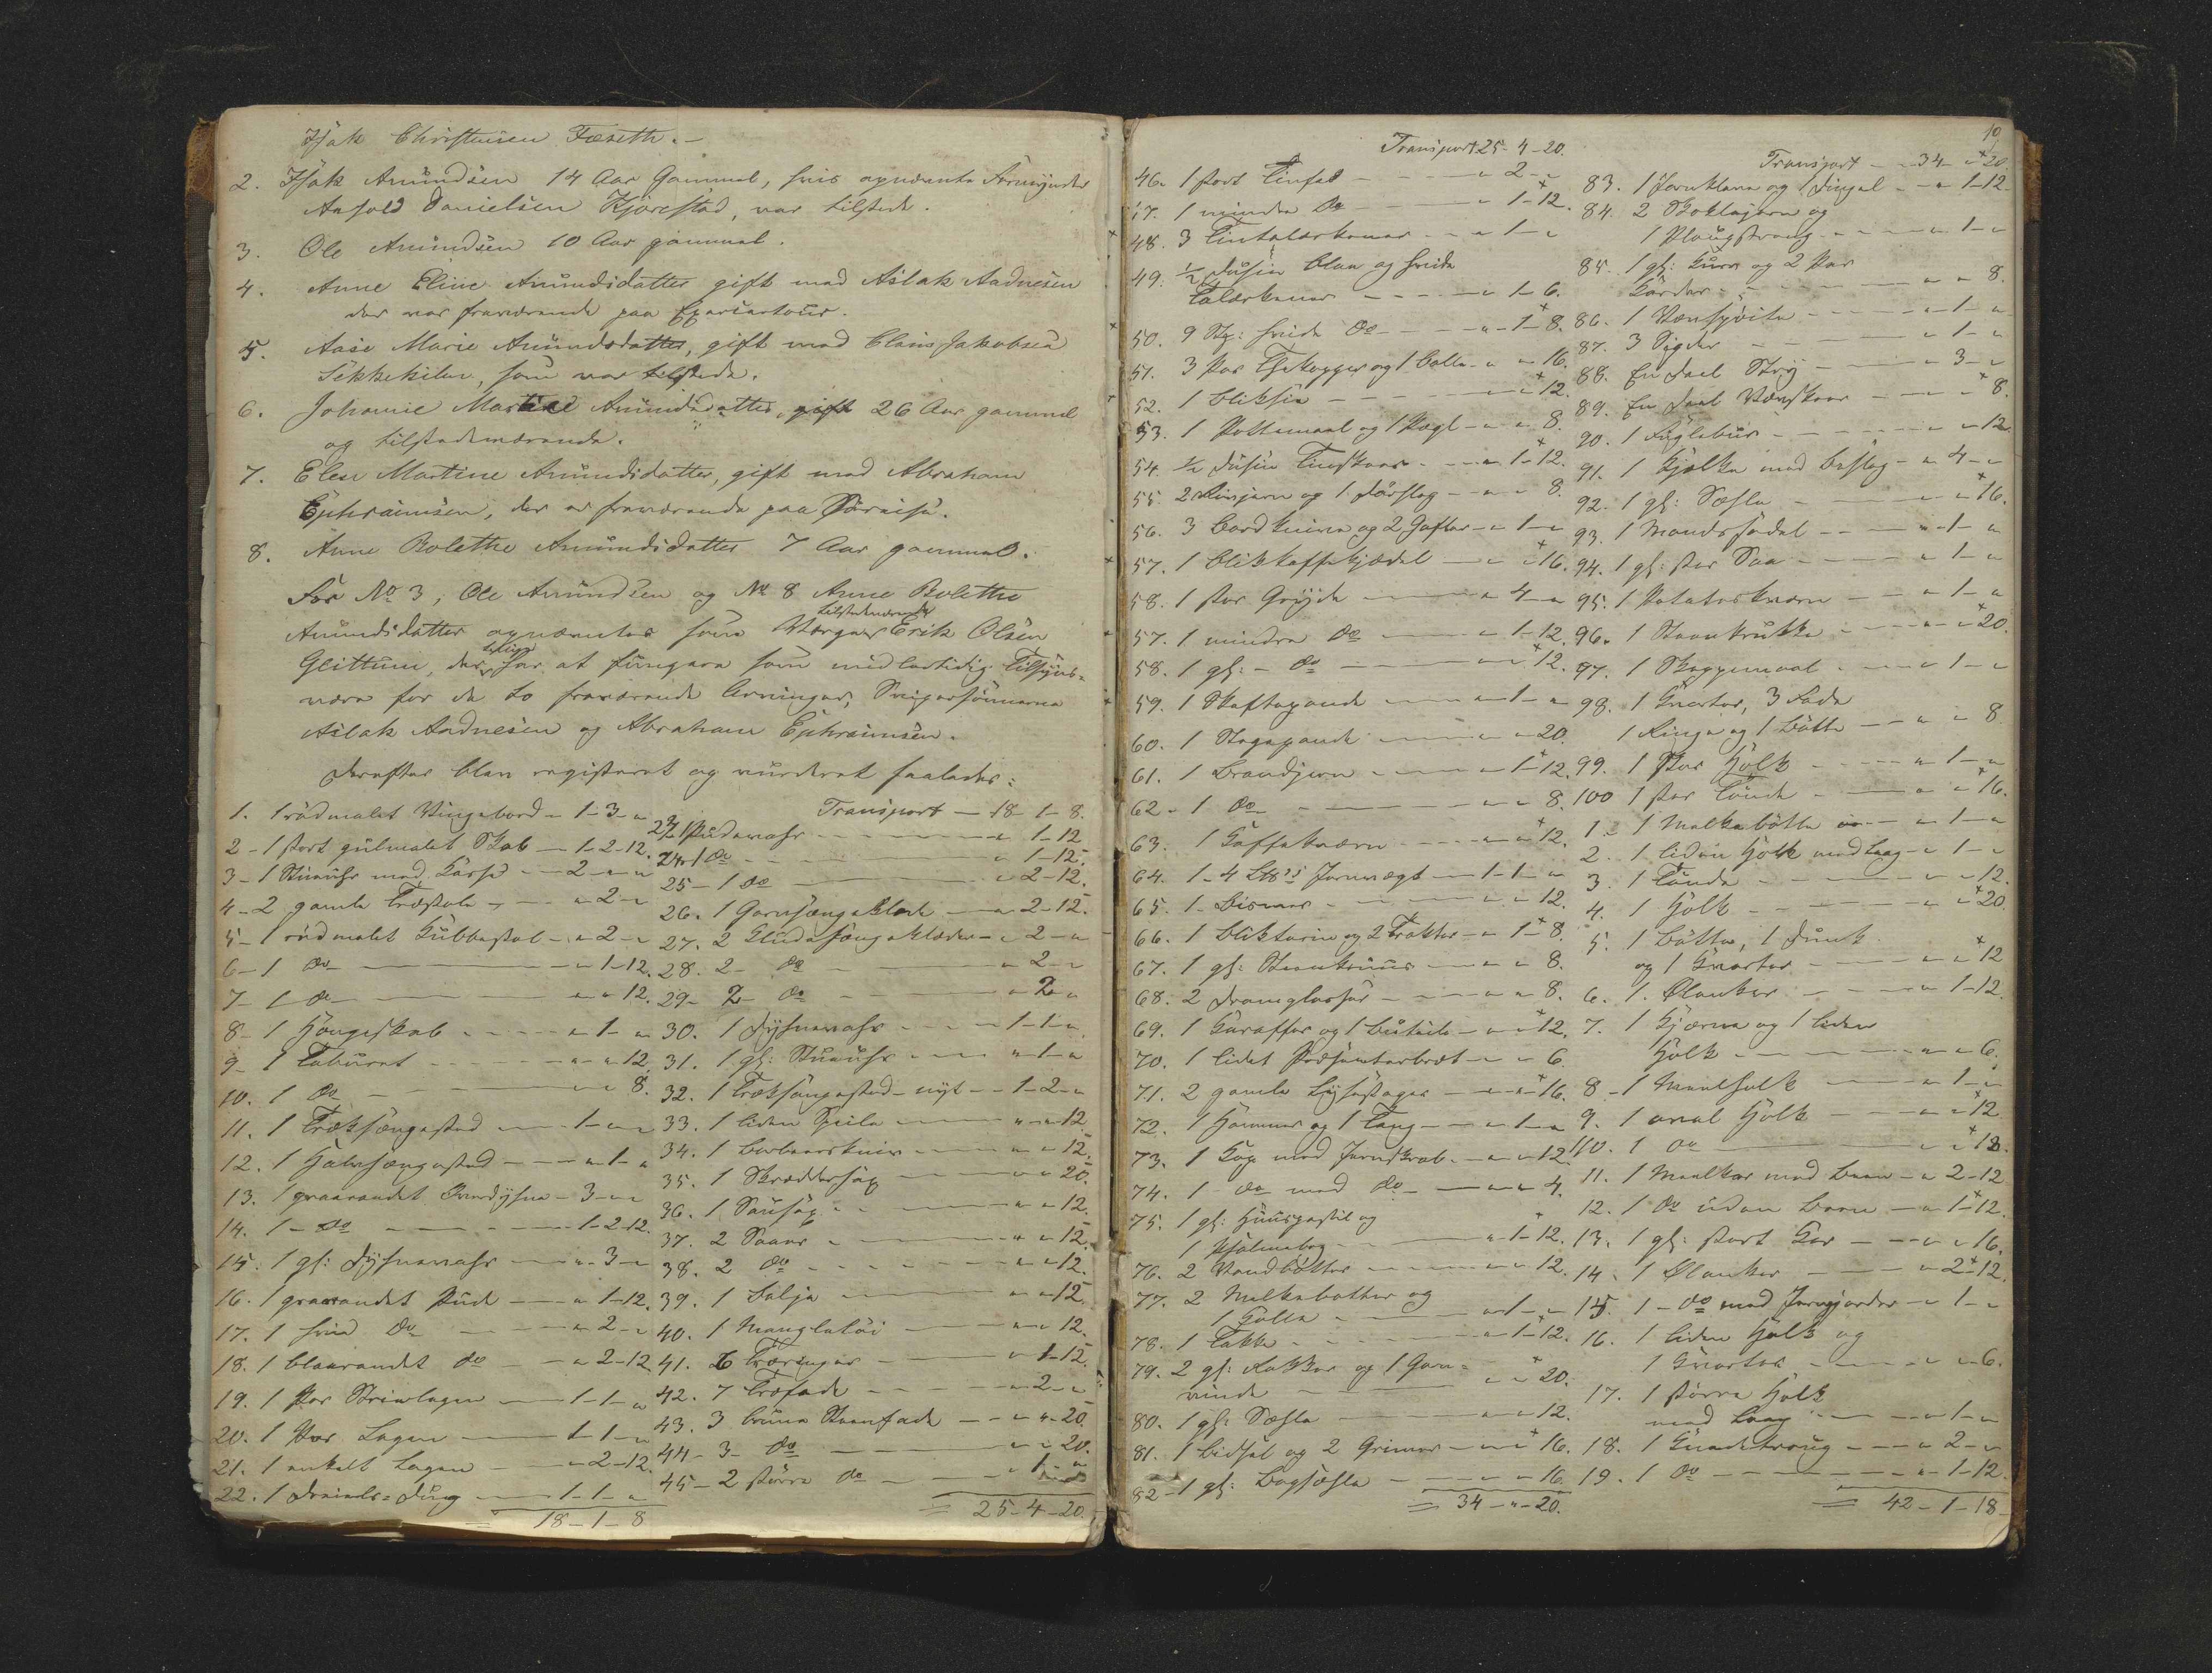 Isak Christensen Fæseth.-
2. Isak Amundsen 14 Aar Gammel, hvis opnævnte Formynder
Aasold Danielsen Kjørestad, var tilstede.
3. Ole Amundsen 10 Aar gammel.
4. Anne Eline Amundsdatter gift med Aslak Aadnesen
der var fraværende paa
5. Aase Marie Amundsdatter, gift med Claus Jakobsen
som var tilstede.
6. Johanne Martine Amundsdatter, gift 26 Aar gammel
og tilstedeværende.
7. Elen Martine Amundsdatter, gift med Abraham
Ephraimsen, der er fraværende paa Søreise.
8. Anne Bolethe Amundsdatter 7 Aar gammel.
For No 3, Ole Amundsen og No 8 Anne Bolethe
tilstedeværende
Amundsdatter opnævntes som Værger Erik Olsen
Glittum, der har at fungere som midlertidig Tilsyns-
være for de to fraværende Arvinger, Svigersønnerne
Aslak Aadnesen og Abraham Ephraimsen.
Derefter blev registeret og vurderet saaledes:
1. 1 rødmalet Vingebord - 1-3-"
2 - 1 stort gulmalet Skab - 1-2-12.
3 - 1 Stueuhr med Kasse - 2-"-"
4 - 2 gamle Træstole - " - 2-"
5 - 1 rødmalet Kubbestol - " - 2-"
6 - 1 do - " - 1-12.
7 - 1 do - " - " - 12.
8 - 1 Hængeskab - " - 1 - "
9 - 1 Taburet - " - " - 12.
10. 1 do - " - " 8.
11. 1 Træksængested - 1-"-"
12. 1 Halvsængested - " - 1 - "
13. 1 graarandet Overdyne - 3-"-"
14. 1 - do - 1-2-12.
15. 1 gl: Dynevaar - " - 3 - "
16. 1 graarandet Pude - " 1-12.
17. 1 hvid do - " - 2 - "
18. 1 blaarandet do - " 2-12
19. 1 Par Strielagen - 1-1-"
20. 1 Par Lagen - 1-1-"
21. 1 enkelt Lagen - " - 2-12.
22. 1 Dreiels-Dug - 1-1-"
= 18-1-8
Transport - 18-1-8.
23. 1 Pudevaar - " 1-12
24. 1 do - " 1-12.
25 - 1 do - " 2-12.
26. 1 Garnsængeklæde - " 2-12.
27. 2 Kludesængeklæder - " 2 - "
28. 2 - do - " 2 - "
29 - 2 - do - " 2 "
30. 1 Dynevaar - 1-1-"
31. 1 gl: Stueuhr - " - 1 - "
32. 1 Træksængested - nyt - 1-2-"
33. 1 liden Speile - " - " - 12
34. 1 Barbeerkniv - " " 12.
35. 1 Skræddersax - " - " 20.
36. 1 Sausax - " - " 12.
37. 2 Saaer - " - " 12.
38. 2 do - " " 12.
39. 1 Balje - " - " 12
40. 1 Mangletøi - " " 12.
41. 6 Træringer - " 1-12.
42. 7 Træfade - " 2 - "
43. 3 brune Steenfade - " " 20
44 - 3 - do - " " 20.
45 - 2 større do - " 1 - "
= 25-4-20.
Transport 25-4-20.
46. 1 stort Tinfad - " 2 - "
47. 1 mindre do - " 1-12.
48. 3 Tintalerkener - " 1 - "
49. 1/2 Dusin blaa og hvide
Talerkener - " 1-6.
50. 9 Stk: hvide do - " 1-8.
51. 3 Par Thekopper og 1 Bolle - " " 16.
52. 1 - " " 12.
53. 1 Pottemaal og 1 Pægl - " " 8.
54. 1/2 Dusin Tinskeer - " 1-12.
55. 2 og 1 Dørslag - " " 8.
56. 3 Bordknive og 2 Gafler - " 1 - "
57. 1 Blikkaffekjædel - " " 16.
58. 1 stor Gryde - " 4 - "
57. 1 mindre do - " 1-12.
58. 1 gl: - do - " " 12.
59. 1 Skaftepande - " 1 - "
60. 1 Stegepande - " " 20.
61. 1 Brandjern - " 1-12.
62 - 1 do - " " 8.
63. 1 Kaffekværn - " " 12.
64. 1 - 4 Jernvægt - 1-1-"
65. 1 - Bismer - " " 12.
66. 1 Bliktarin og 2 Trakter - " 1-8.
67. 1 gl: Steenkruus - " " 8.
68. 2 Dramglasser - " " 8.
69. 1 Karaffer og 1 Buteile - " " 12.
70. 1 lidet Præsenteerbræt - " " 6
71. 2 gamle Lysestager - " " 16.
72. 1 Hammer og 1 Tang - " 1 - "
73. 1 Kop med Jernskrab - " " 12
74. 1 - do med do - " " 4.
75. 1 gl: Huuspostil og
1 Psalmebog - " 1-12.
76. 2 Vandbøtter - " " 12.
77. 2 Melkebøtter og
1 Holk - " 1 - "
78. 1 Takke - " 1-12.
79. 2 gl: Rokker og 1 Garn-
vinde - " " 20.
80. 1 gl: - " " 12.
81. 1 Bidsel og 2 Grimer - " " 16.
82 - 1 gl: - " " 16
= 34-"-20.
10
Transport - 34-"-20.
83. 1 og 1 - " 1-12
84. 2 og
1 - " 1 - "
85. 1 gl: Kurv og 2 Par
Karder - " " 8.
86. 1 - " 1 - "
87. 3 Sigder - " 1 - "
88. En Deel Stry - " 3 - "
89. En Deel - " " 8.
90. 1 Fuglebuur - " " 12
91. 1 Kjælke med Beslag - " 4 - "
92. 1 gl: - " " 16.
93. 1 Mandssadel - " 1 - "
94. 1 gl: stor Saa - " 1 - "
95. 1 Potateskværn - " 1 - "
96. 1 Steenkrukke - " " 20.
97. 1 Skjeppemaal - " 1 - "
98. 1 Kvarter, 3 Fade
1 Ringe og 1 Bøtte - " " 8.
99. 1 stor Holk - " 1 - "
100 1 stor Tønde - " " 16.
1 - 1 Malkebøtte - " 1 - "
2. 1 liden Holk med Laag - " 1 - "
3. 1 Tønde - " " 12.
4. 1 Holk - " " 20
5. 1 Bøtte, 1 Dunk
og 1 Kvarter - " " 12
6. 1. Ølanker - " 1-12.
7. 1 Kjærne og 1 liden
Holk - " " 6.
8 - 1 Meelholk - " 1 - "
9. 1 oval Holk - " " 12
110. 1 do - " " 12.
11. 1 Maaltkar med Been - " 2-12
12. 1 do uden Been - " 1-12.
13. 1 gl: stort Kar - " " 16.
14. 1 Ølanker - " 2-12.
15. 1 - do med Jerngjorder - " 1 - "
16. 1 liden Holk og
1 Kvarter - " " 6.
17. 1 større Holk
med Laag - " 1 - "
18. 1 Knadetroug - " 2 - "
19. 1 do - " 1-12.
= 42-1-18